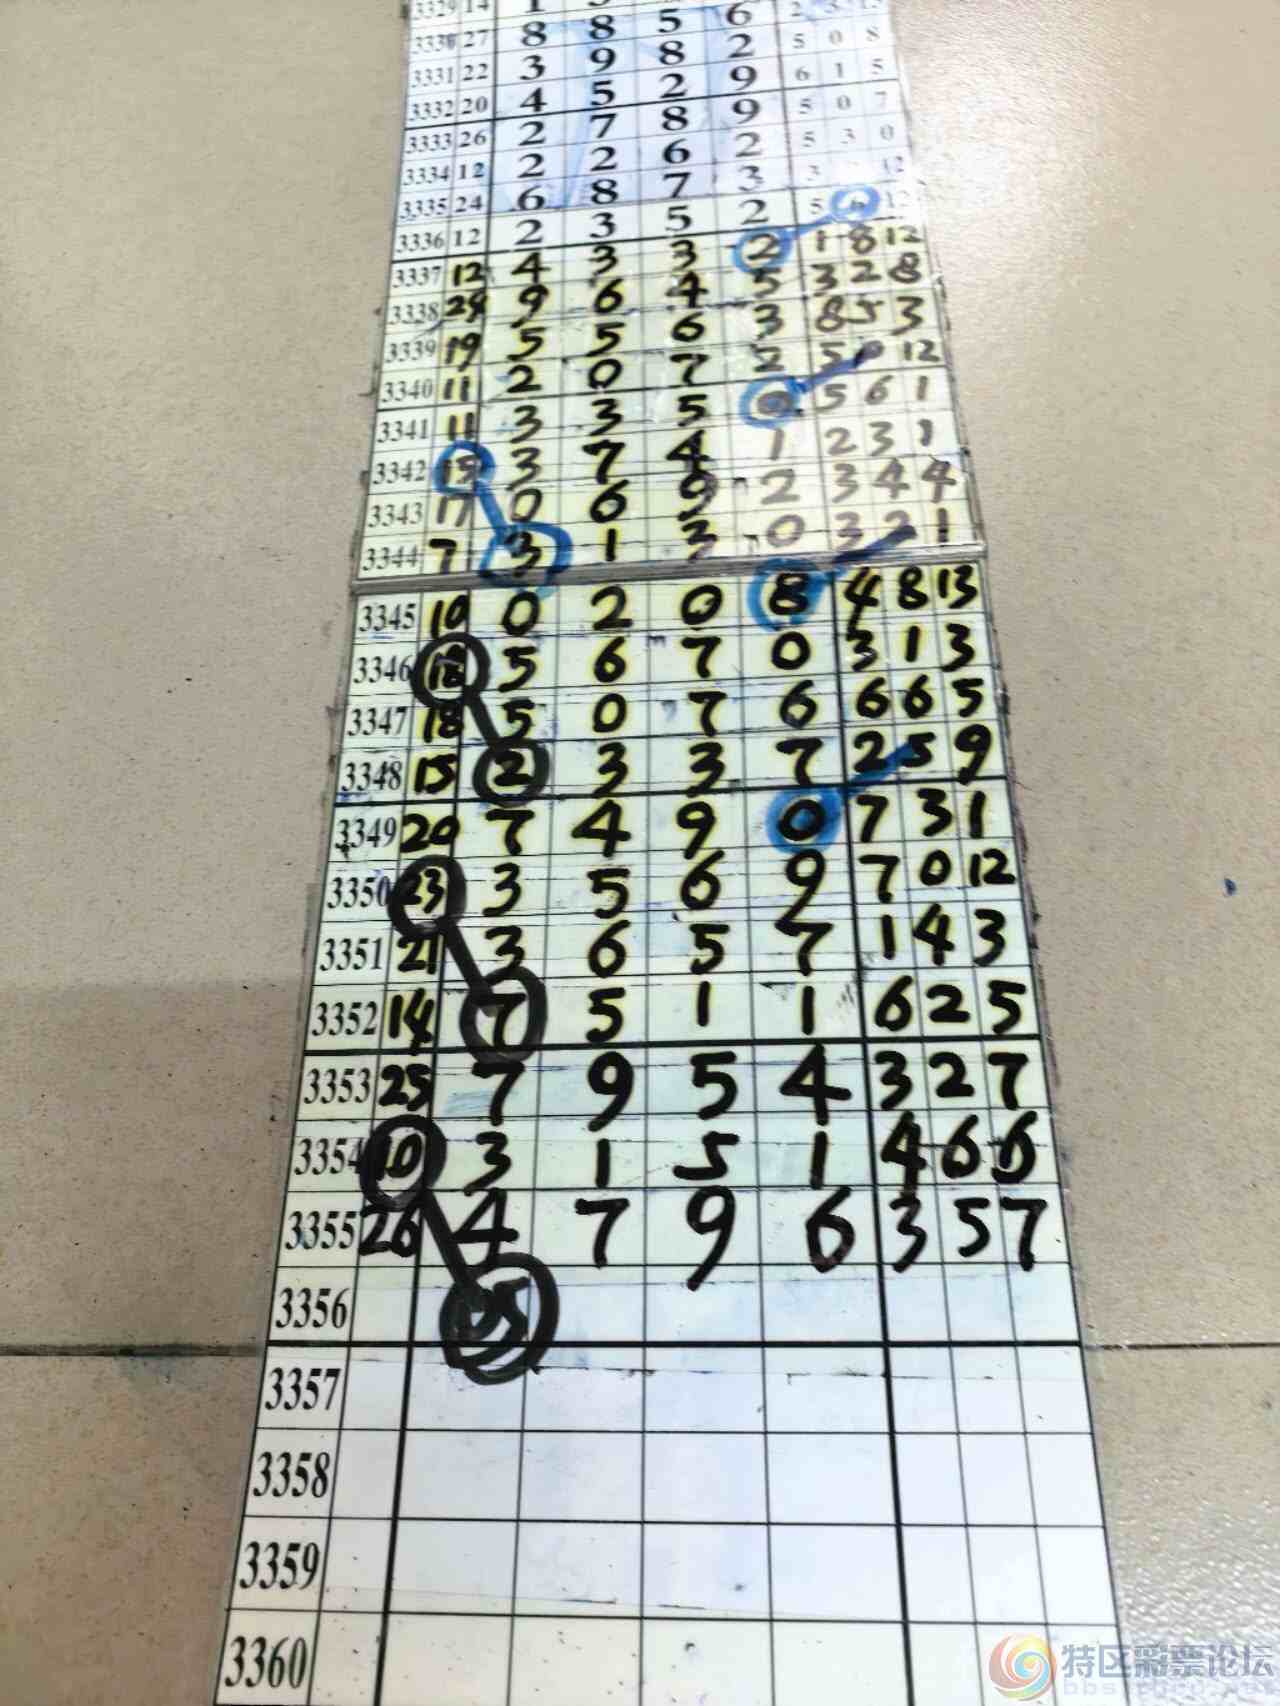 3329 14 1
3330 27 8 8 5 6 5 0 8
3331 22 3 9 8 2 6 1 5
3332 20 4 5 2 9 5 0 7
3333 26 2 7 8 9 5 3 0
3334 12 2 2 6 2 3 12
3335 24 6 8 7 3 5 12
3336 12 2 3 5 2 1 8 12
3337 12 4 3 3 2 3 2 8
3338 24 9 6 4 5 8 5 3
3339 19 5 5 6 3 5 0 12
3340 11 2 0 7 2 5 6 1
3341 11 3 3 5 0 2 3 1
3342 15 3 7 4 1 3 4 4
3343 17 0 6 9 2 3 2 1
3344 7 3 1 3 0
3345 10 0 2 0 8 4 8 13
3346 18 5 6 7 0 3 1 3
3347 18 5 0 7 6 6 6 5
3348 15 2 3 3 7 2 5 9
3349 20 7 4 9 0 7 3 1
3350 23 3 5 6 9 7 0 12
3351 21 3 6 5 7 1 4 3
3352 14 7 5 1 1 6 2 5
3353 25 7 9 5 4 3 2 7
3354 10 3 1 5 1 4 6 6
3355 26 4 7 9 6 3 5 7
3356
3357
3358
3359
3360
特区彩票论坛